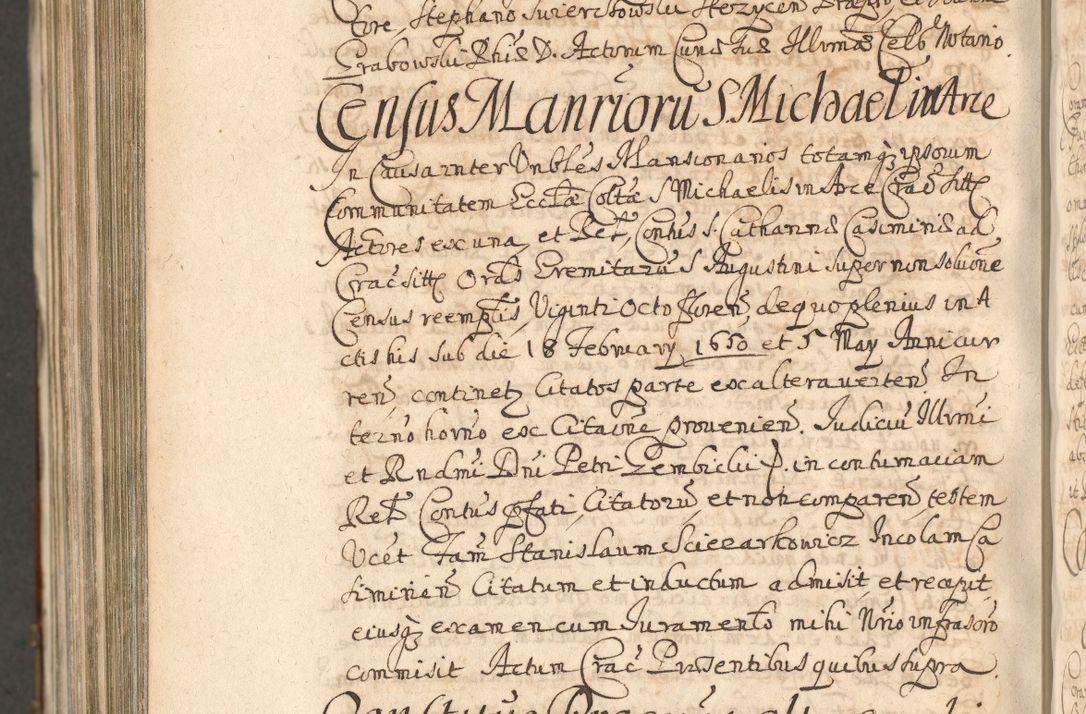 tore, Stephano Swierczkowski
Grabowski Phiæ D. Actorum Curiæ suæ Illrmæ Celb Notario.
Census Manriorũ S. Michael in Arce
In Causa inter Vnbles Mansionarios totamq ipsorum
Communitatem Ecclæ Coltæ S Michaelis in Arce Crac sitt
Actores ex una, et Relt, Contus S. Catharinæ Casimiriæ ad
Crac sitt Ordis Eremitarũ S Augustini super non soluõne
Census reemptlis, Viginti Octo floren, de quo plenius in A
ctis his sub die 18 February 1650 et 5 May Anni cur
ren continetz Citatos parte ex altera verten In
termo horno ex Citaõne provenien. Iudiciũ Illrmi
et Rndmi Dni Petri Gembicki P. in contumaciam
Relt Contus pfati, Citatorũ et non comparen, testem
Vcet Fam Stanislaum Sciezarkowicz Incolam Ca
simirien Citatum et inductum admisit, et recepit
eiusq examen cum Iuramento mihi Nrio infrascro
commisit Actum Crac Præsentibus quibus supra